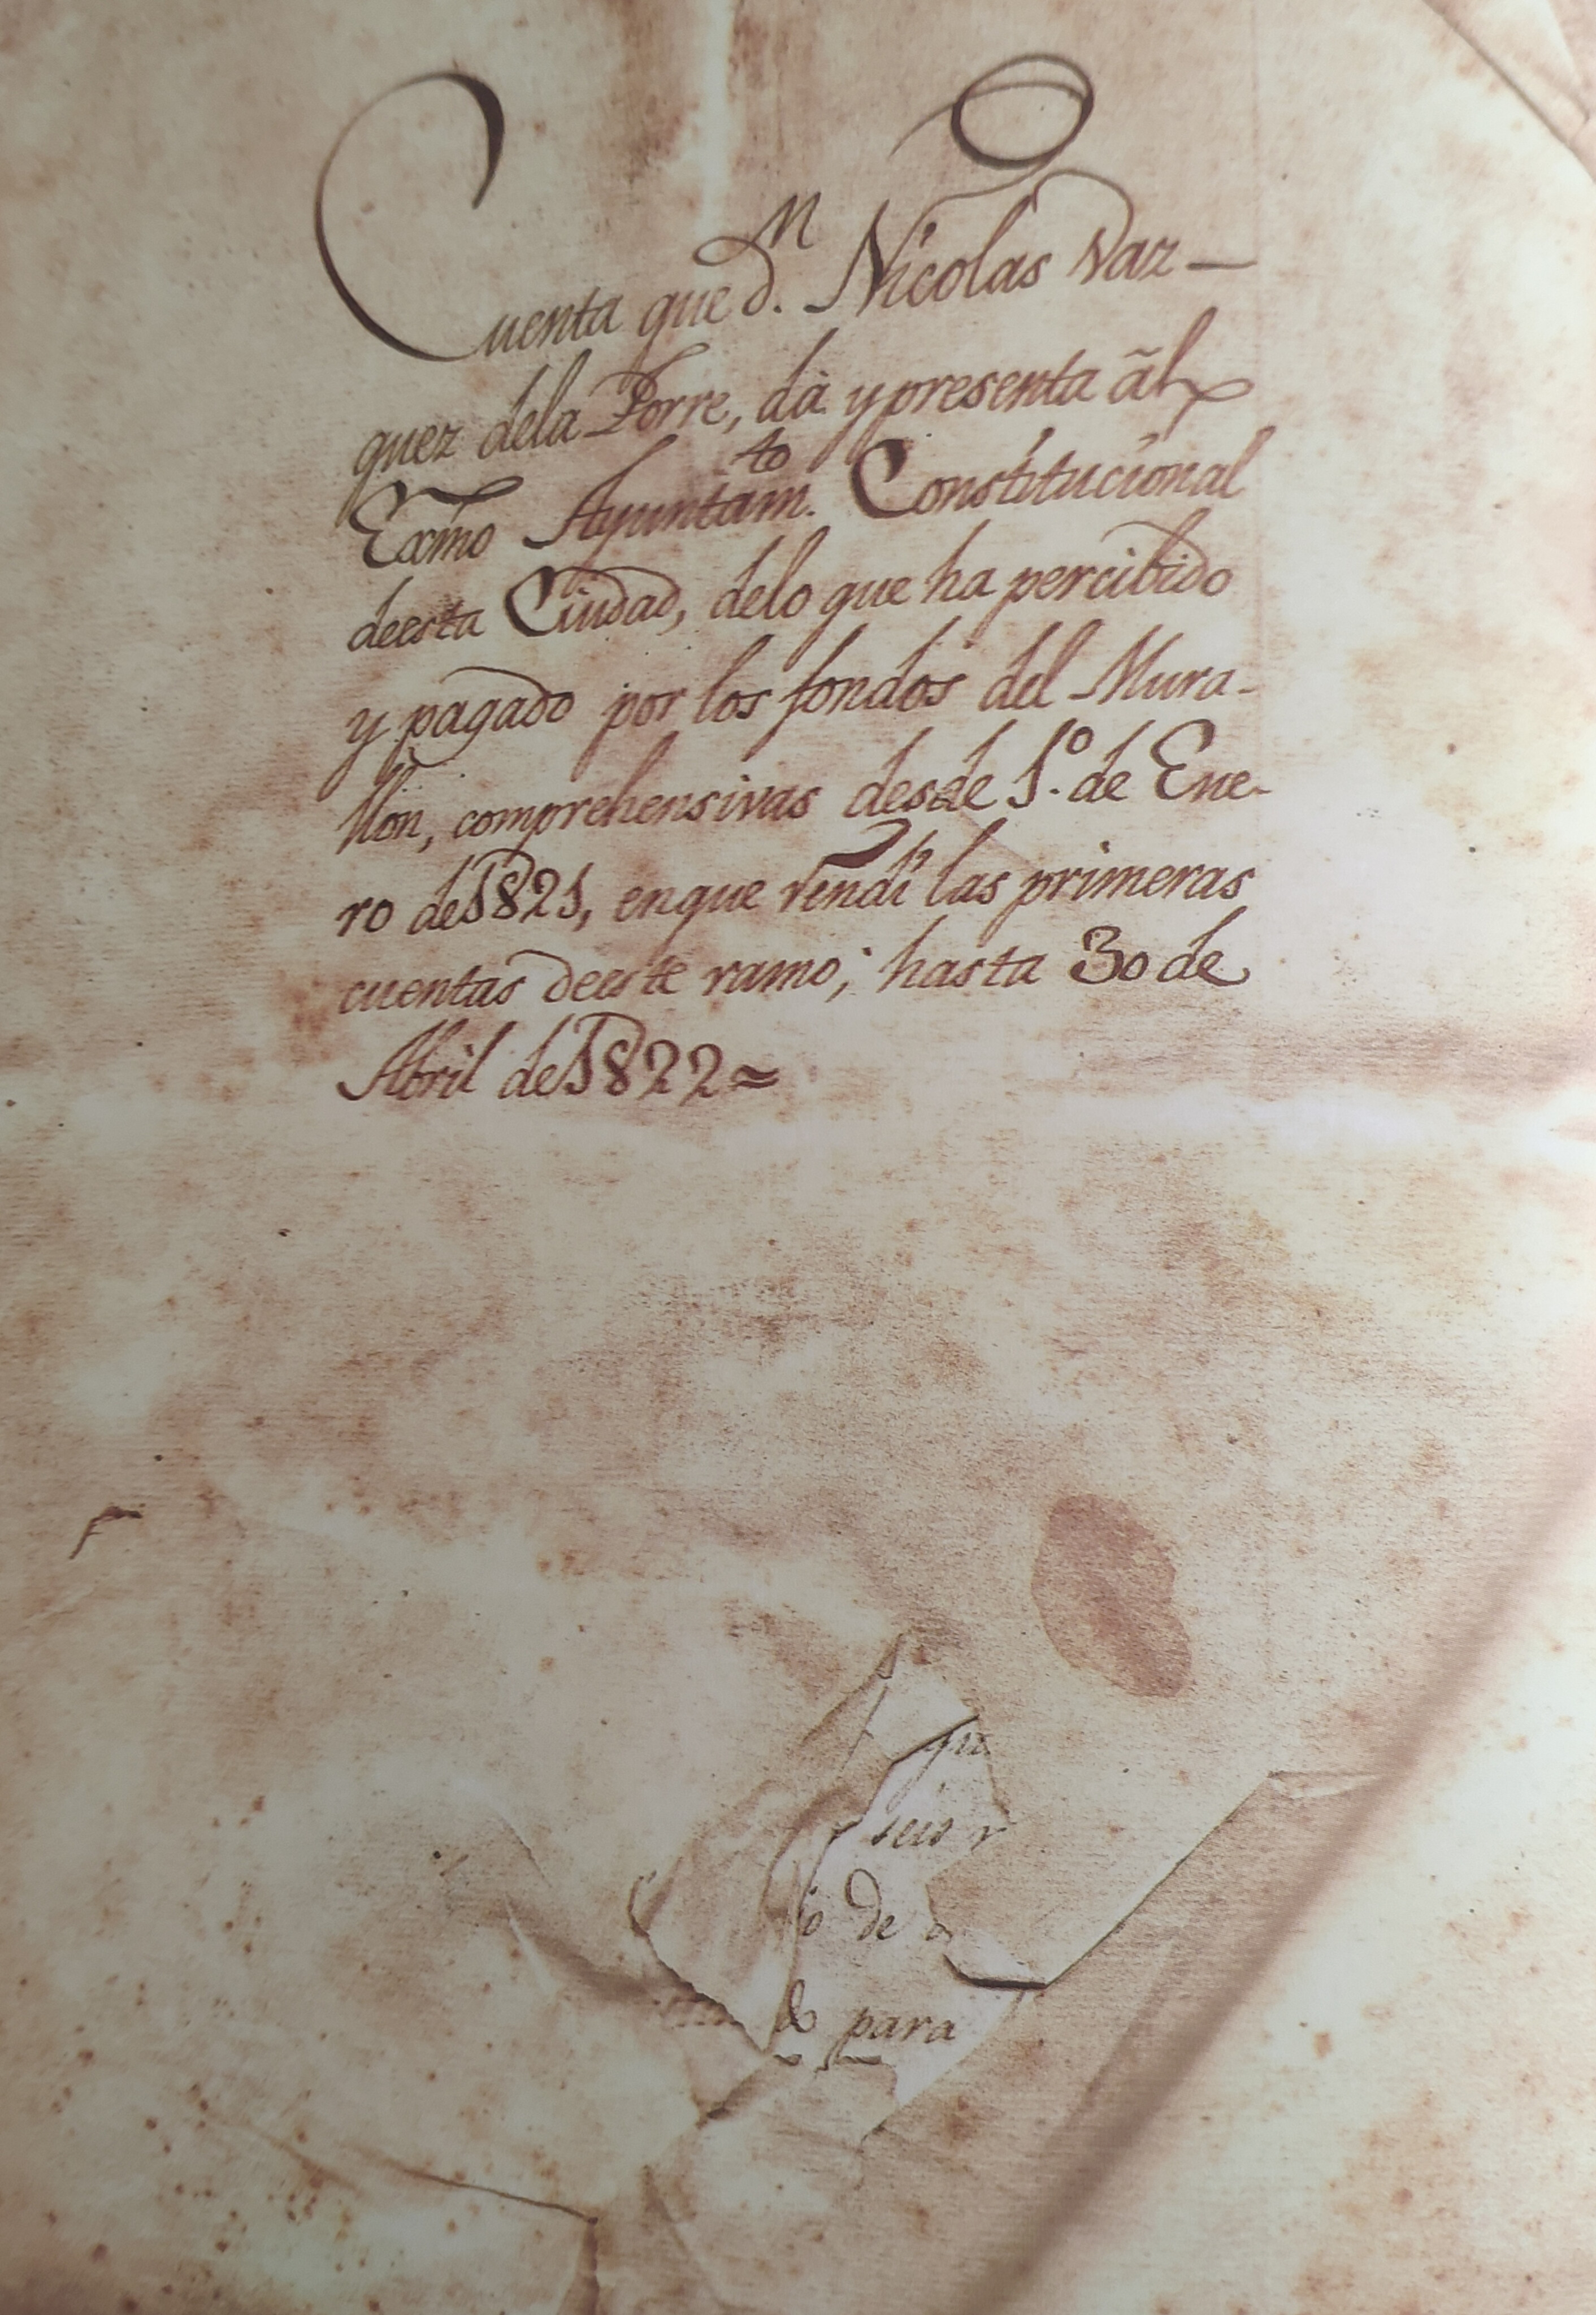 Cuenta que d.n Nicolas Vaz-
quez dela Torre, dà y presenta ãl
Exm̃o Ayuntam.to Constitucional
deesta Ciudad, delo que ha percibido
y pagado por los fondos del Mura-
llon, comprehensivas desde 1.º de Ene-
ro de 1821, enque rendí las primeras
cuentas deeste ramo; hasta 30 de
Abril de 1822=
seis
de
para